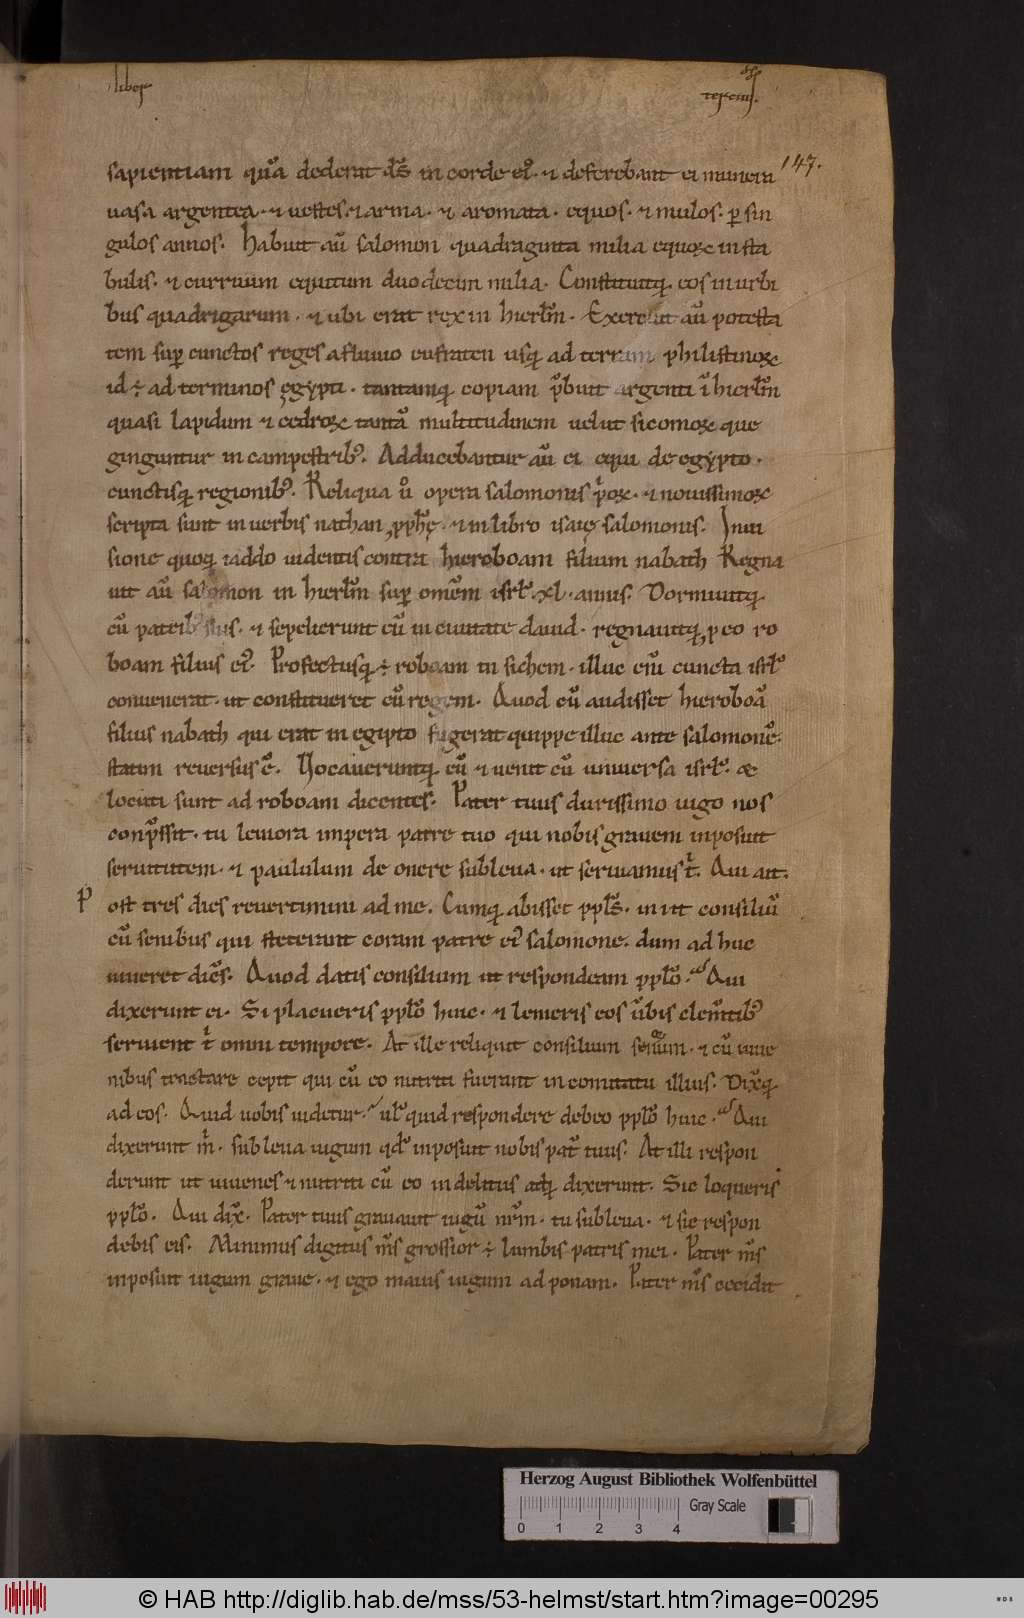 liber
tercius.
147.
sapientiam quā dederat ds̄ in corde ei᷒. ⁊ deferebant ei munera
uasa argentea. ⁊ uestes. ⁊ arma. ⁊ aromata. equos. ⁊ mulos. ꝑ sin
gulos annos. Habuit aū salomon quadraginta milia equoꝝ in sta
bulis. ⁊ curruum equitum duodecim milia. Constituitqꝫ eos in urbi
bus quadrigarum. ⁊ ubi erat rex in hierłm. Exercuit aū potesta
tem sup̄ cunctos reges a fluuio eufraten usqꝫ ad terram philistinoꝝ
id ÷ ad terminos egypti. tantamqꝫ copiam p̄buit argenti ī hierłm
quasi lapidum ⁊ cedroꝝ tantā multitudinem uelut sicomoꝝ que
ginguntur in campestrib᷒. Adducebantur aū ei equi de egypto.
cunctisqꝫ regionib᷒. Reliqua ů opera salomonis p̍oꝝ. ⁊ nouissimoꝝ
scripta sunt in uerbis nathan ꝓph̄ę. ⁊ in libro isaię salomonis. In ui
sione quoqꝫ iaddo uidentis contra hieroboam filium nabath Regna
uit aū salomon in hierłm sup̄ omēm isrł. xl. annis. Dormiuitqꝫ
cū patrib᷒ suis. ⁊ sepelierunt eū in ciuitate dauid. regnauitqꝫ ꝑ eo ro
boam filius ei᷒. Profectusqꝫ ÷ roboam in sichem. illuc enī cuncta isrł
conuenerat. ut constitueret eū regem. Quod cū audisset hieroboā
filius nabath qui erat in egipto fugerat quippe illuc ante salomonē.
statim reuersus ē. Uocaueruntqꝫ eū ⁊ uenit cū uniuersa isrł. &
locuti sunt ad roboam dicentes. Pater tuus durissimo iugo nos
conp̄ssit. tu leuiora impera patre tuo qui nobis grauem inposuit
seruitutem. ⁊ paululum de onere subleua. ut seruiamus t̍. Qui ait.
P ost tres dies reuertimini ad me. Cumqꝫ abisset ppłs. iniit consiliū
cū senibus qui steterant coram patre ei᷒ salomone. dum ad huc
uiueret diēs. Quod datis consilium ut respondeam ppło. Qui
dixerunt ei. Si placueris ppło huic. ⁊ lenieris eos ūbis clem̄tib᷒
seruient t̍ omni tempore. At ille reliquit consilium senum. ⁊ cū iuue
nibus tractare cepit qui cū eo nutriti fuerant in comitatu illius. Dix̄qꝫ
ad eos. Quid uobis uidetur. uł quid respondere debeo ppło huic. Qui
dixerunt m̍. subleua iugum qd̄ inposuit nobis pat̄ tuus. At illi respon
derunt ut iuuenes ⁊ nutriti cū eo in delitiis atqꝫ dixerunt. Sic loqueris
ppło. Qui dix̄. Pater tuus grauauit iugū nr̄m. tu subleua. ⁊ sic respon
debis eis. Minimus digitus m̄s grossior ÷ lumbis patris mei. Pater m̄s
inposuit iugum graue. ⁊ ego maius iugum ad ponam. Pater m̄s cecidit
Herzog August Bibliothek Wolfenbüttel
Gray Scale
0 1 2 3 4
© HAB http://diglib.hab.de/mss/53-helmst/start.htm?image=00295